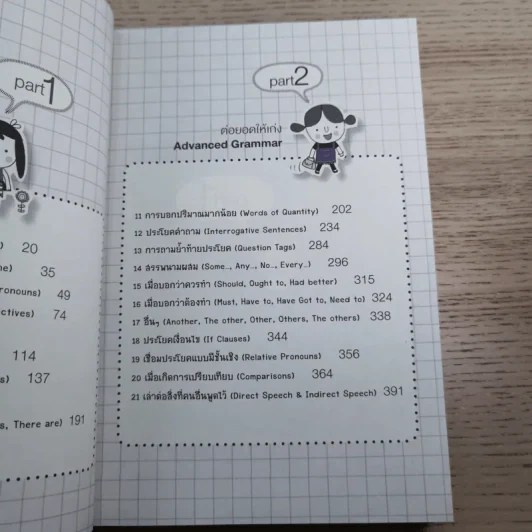 part1
20
35
ronouns) 49
ctives) 74
114
s) 137
s, There are) 191
part2
ต่อยอดให้เก่ง
Advanced Grammar
11 การบอกปริมาณมากน้อย (Words of Quantity) 202
12 ประโยคคำถาม (Interrogative Sentences) 234
13 การถามย้ำท้ายประโยค (Question Tags) 284
14 สรรพนามผสม (Some.., Any.., No.., Every..) 296
15 เมื่อบอกว่าควรทำ (Should, Ought to, Had better) 315
16 เมื่อบอกว่าต้องทำ (Must, Have to, Have Got to, Need to) 324
17 อื่นๆ (Another, The other, Other, Others, The others) 338
18 ประโยคเงื่อนไข (If Clauses) 344
19 เชื่อมประโยคแบบมีชั้นเชิง (Relative Pronouns) 356
20 เมื่อเกิดการเปรียบเทียบ (Comparisons) 364
21 เล่าต่อสิ่งที่คนอื่นพูดไว้ (Direct Speech & Indirect Speech) 391